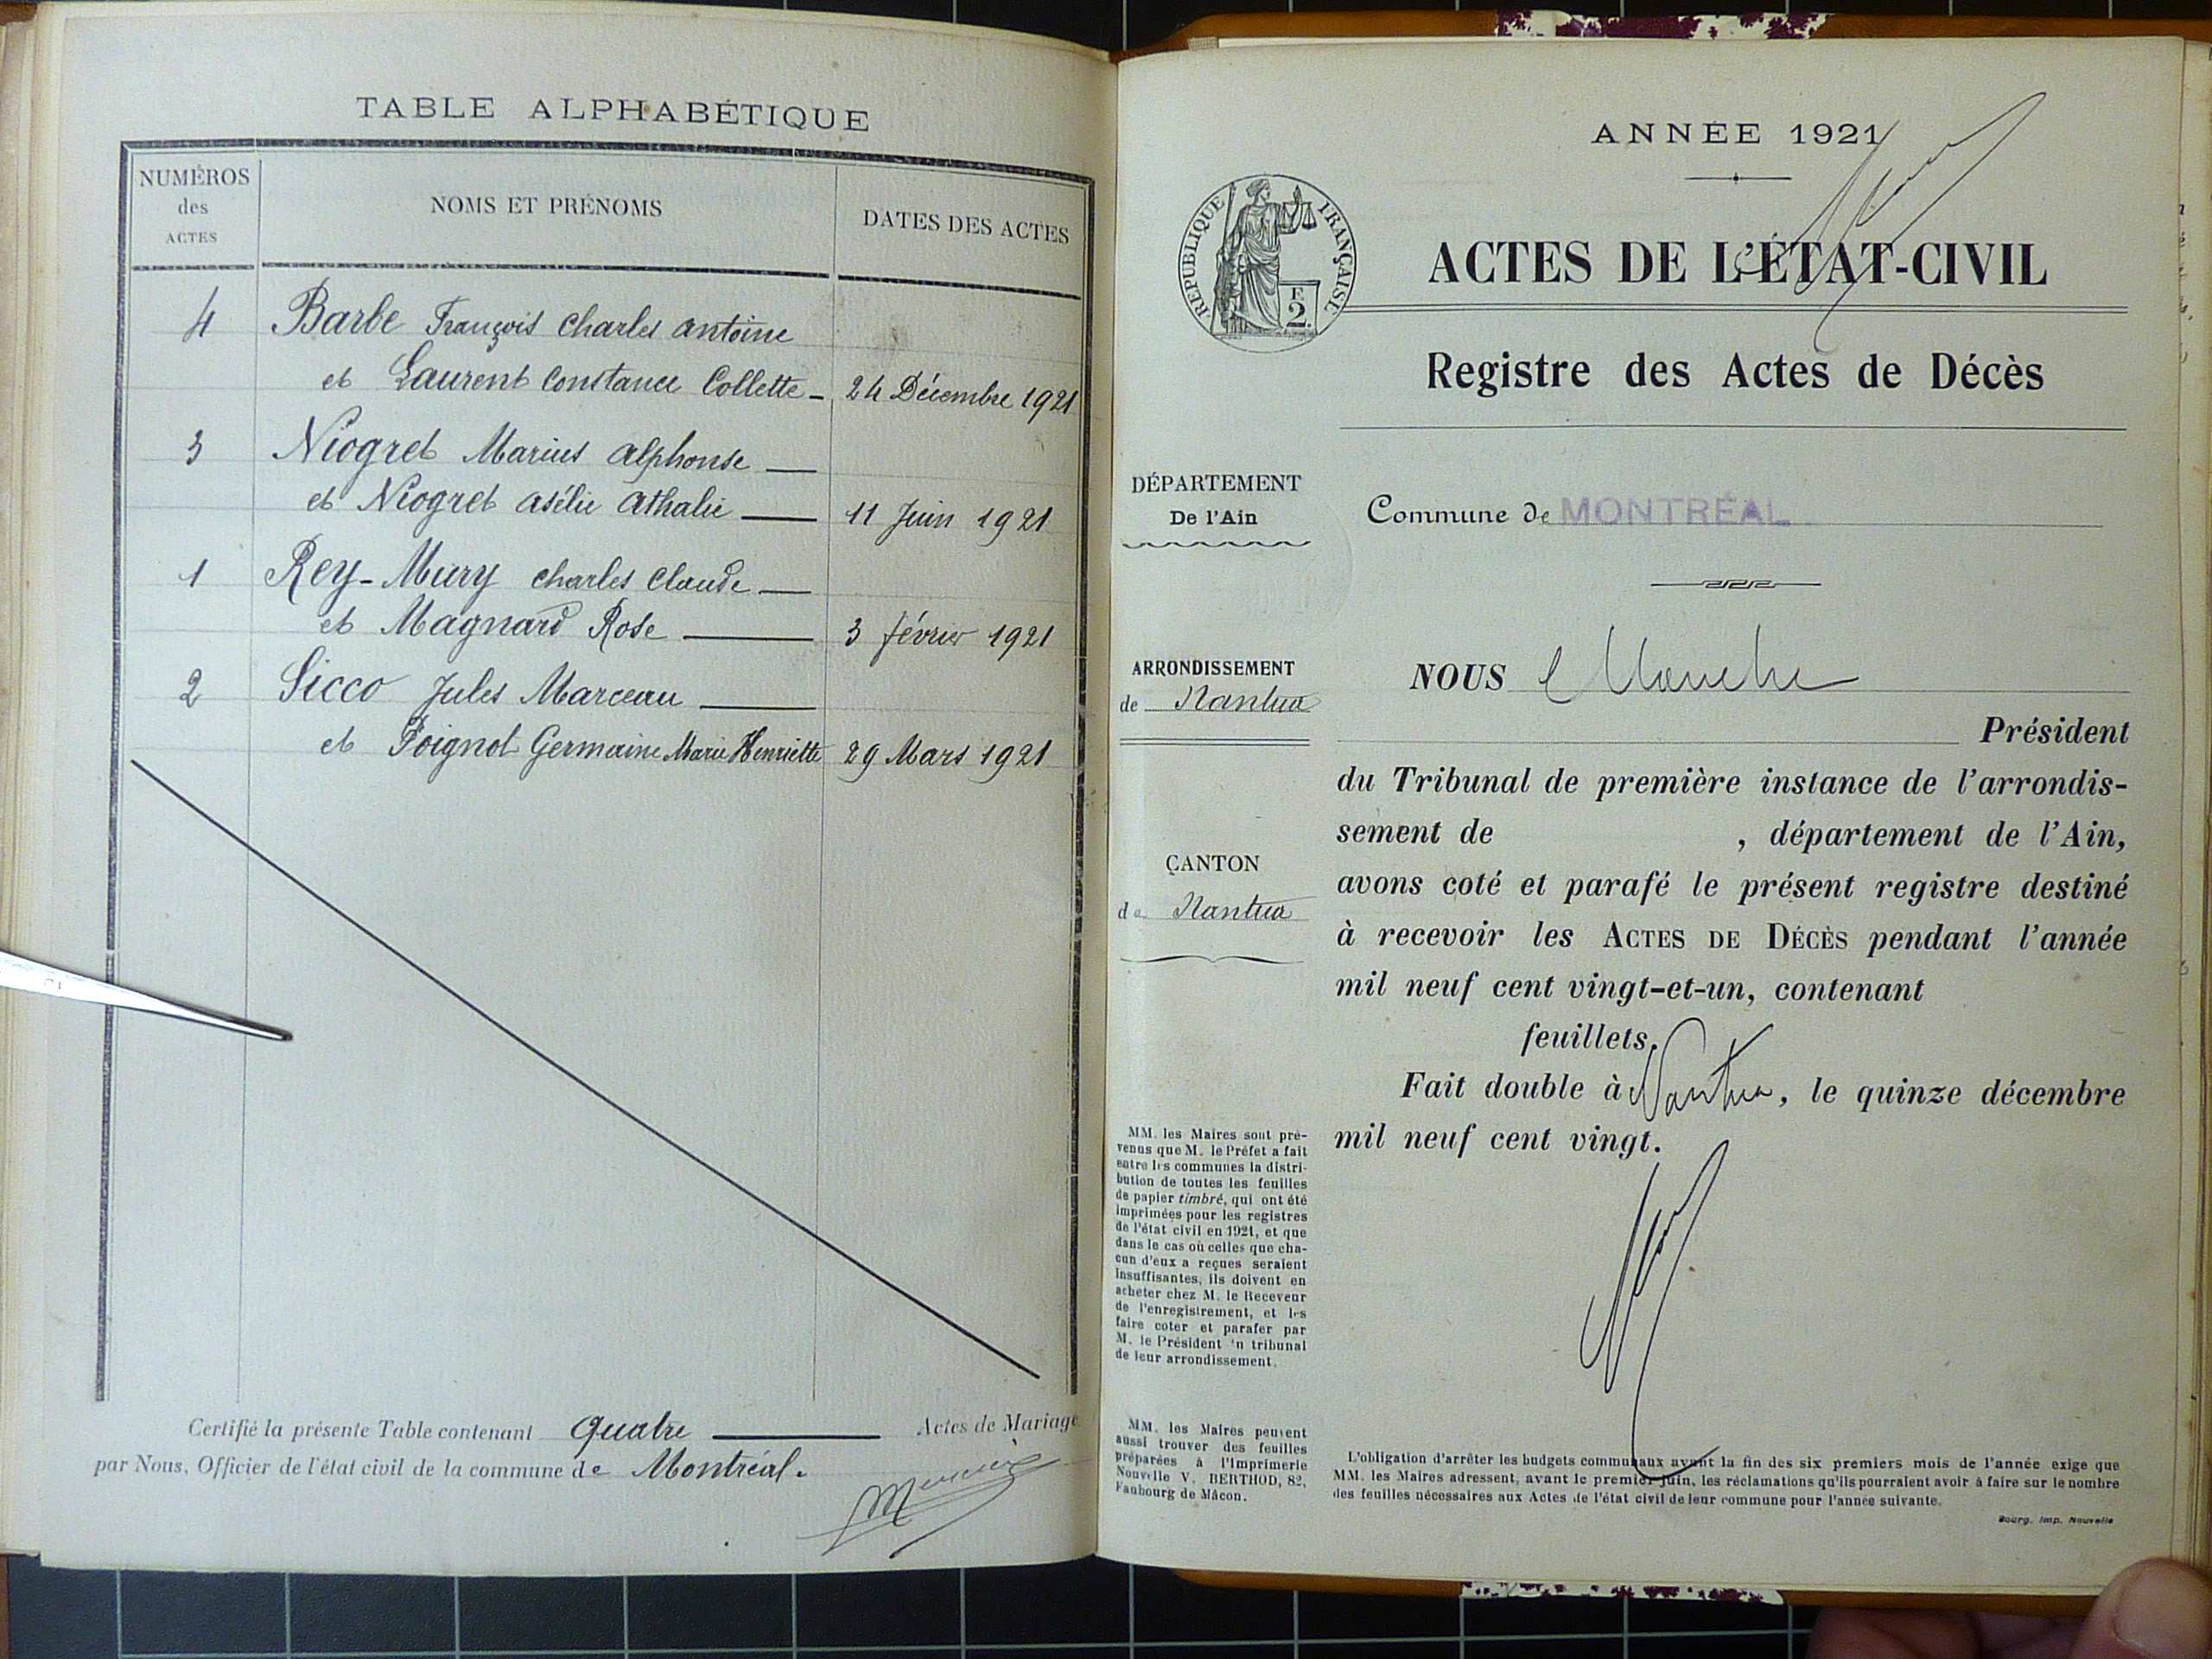 TABLE ALPHABÉTIQUE
NUMÉROS
des
ACTES
NOMS ET PRÉNOMS
DATES DES ACTES
4 Barbe François Charles Antoine
et Laurent Constance Collette - 24 Décembre 1921
3 Niogret Marius Alphonse —
et Niogret Asélie Athalie — 11 Juin 1921
1 Rey-Mury Charles Claude —
et Magnard Rose — 3 février 1921
2 Sicco Jules Marceau —
et Poignot Germaine Marie Henriette 29 Mars 1921
Certifié la présente Table contenant Quatre — Actes de Mariage
par Nous, Officier de l'état civil de la commune de Montréal.
ANNÉE 1921
RÉPUBLIQUE FRANÇAISE
F
2
ACTES DE L'ÉTAT-CIVIL
Registre des Actes de Décès
DÉPARTEMENT
De l'Ain
Commune de MONTRÉAL
ARRONDISSEMENT
de Nantua
CANTON
de Nantua
NOUS
Président
du Tribunal de première instance de l'arrondis-
sement de , département de l'Ain,
avons coté et parafé le présent registre destiné
à recevoir les ACTES DE DÉCÈS pendant l'année
mil neuf cent vingt-et-un, contenant
feuillets.
Fait double à Nantua, le quinze décembre
mil neuf cent vingt.
MM. les Maires sont pré-
venus que M. le Préfet a fait
entre les communes la distri-
bution de toutes les feuilles
de papier timbré, qui ont été
imprimées pour les registres
de l'état civil en 1921, et que
dans le cas où celles que cha-
cun d'eux a reçues seraient
insuffisantes, ils doivent en
acheter chez M. le Receveur
de l'enregistrement, et les
faire coter et parafer par
M. le Président 'n tribunal
de leur arrondissement.
MM. les Maires peuvent
aussi trouver des feuilles
préparées à l'Imprimerie
Nouvelle V. BERTHOD, 82,
Faubourg de Mâcon.
L'obligation d'arrêter les budgets communaux avant la fin des six premiers mois de l'année exige que
MM. les Maires adressent, avant le premier juin, les réclamations qu'ils pourraient avoir à faire sur le nombre
des feuilles nécessaires aux Actes de l'état civil de leur commune pour l'année suivante.
Bourg. Imp. Nouvelle